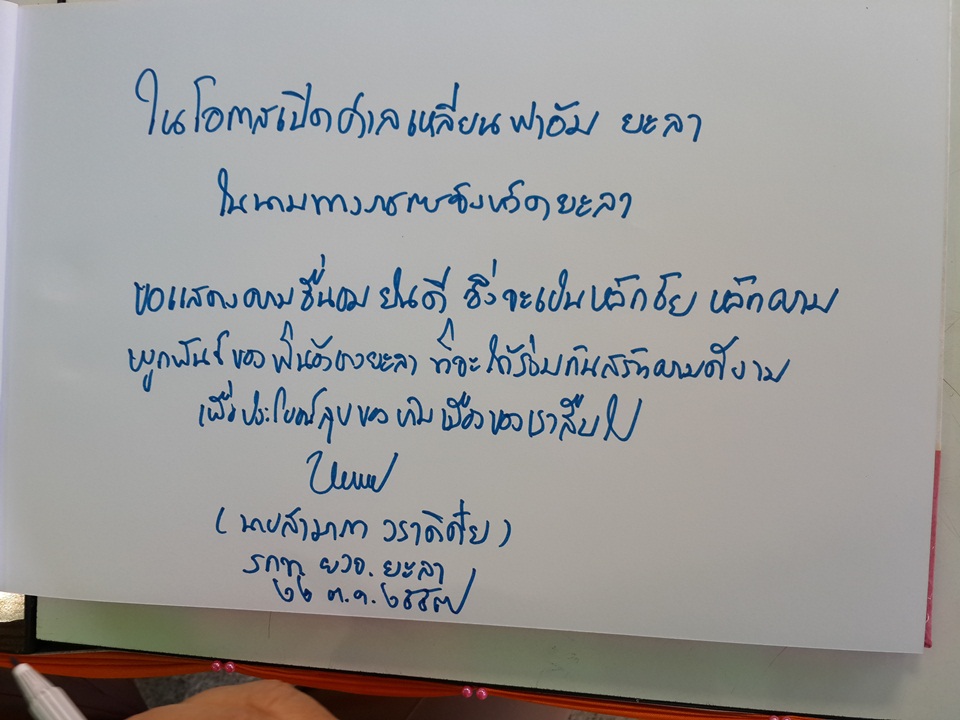 ในโอกาสเปิดศาลเหลี่ยนฟาอัม ยะลา
ในนามทางราชการจังหวัดยะลา
ขอแสดงความชื่นชม ยินดี ซึ่งจะเป็นหลักชัย หลักความ
ผูกพันธ์ของพี่น้องชาวยะลา ที่จะได้ร่วมกันสร้างความดีงาม
เพื่อประโยชน์สุขของบ้านเมืองของเราสืบไป
(นายสามารถ วราดิศัย)
รกท. ผวจ. ยะลา
๒๖ ต.ค. ๒๕๕๗